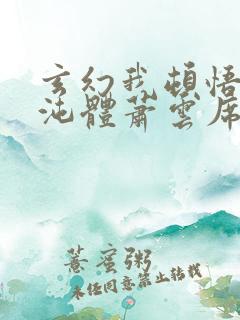 玄幻我頓悟
沌體蕭雲席
薏蜜粥
未经同意禁止转载